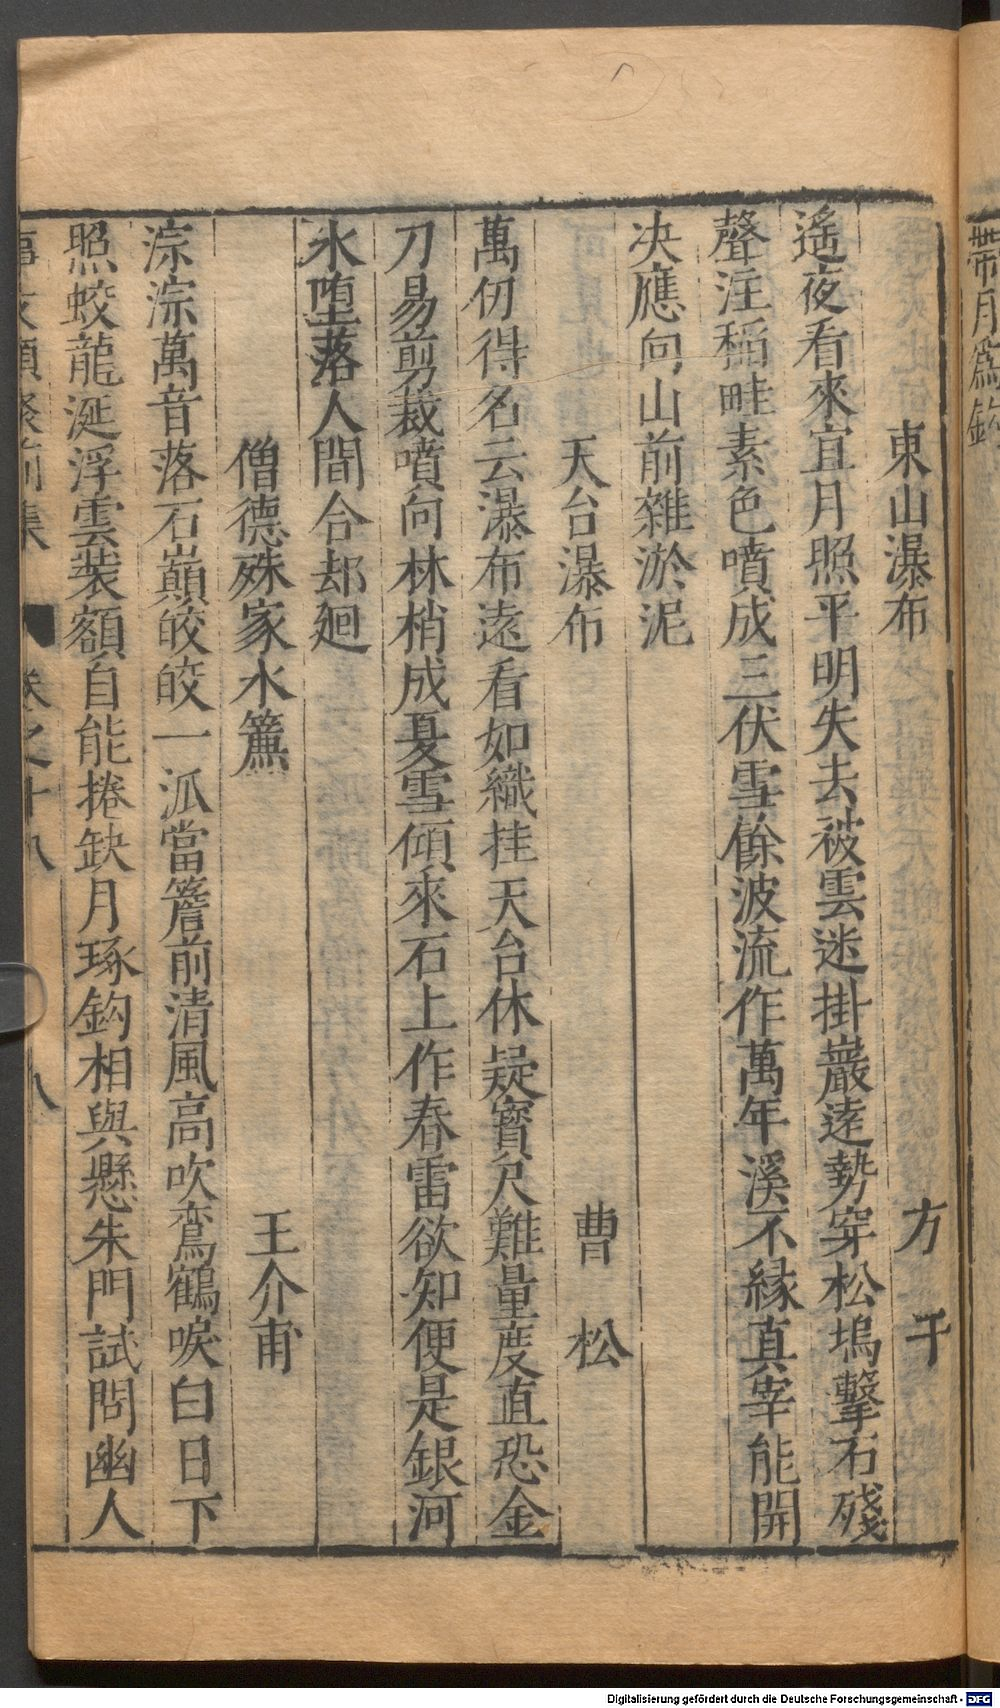 帶月爲鈎
東山瀑布 方干
遙夜看來宜月照平明失去被雲迷掛巖逺勢穿松塢擊石殘
聲注稻畦素色噴成三伏雪餘波流作萬年溪不縁真宰能開
决應向山前雜淤泥
天台瀑布 曹松
萬仞得名云瀑布逺看如織挂天台休疑寶尺難量度直恐金
刀易剪裁噴向林梢成夏雪傾來石上作春雷欲知便是銀河
水墮落人間合却廻
僧德殊家水簾 王介甫
淙淙萬音落石巔皎皎一派當簷前清風高吹鸞鶴唳白日下
照蛟龍涎浮雲裝額自能捲缺月琢鈎相與懸朱門試問幽人
事文類聚前集 卷之十八 八
Digitalisierung gefördert durch die Deutsche Forschungsgemeinschaft - DFG